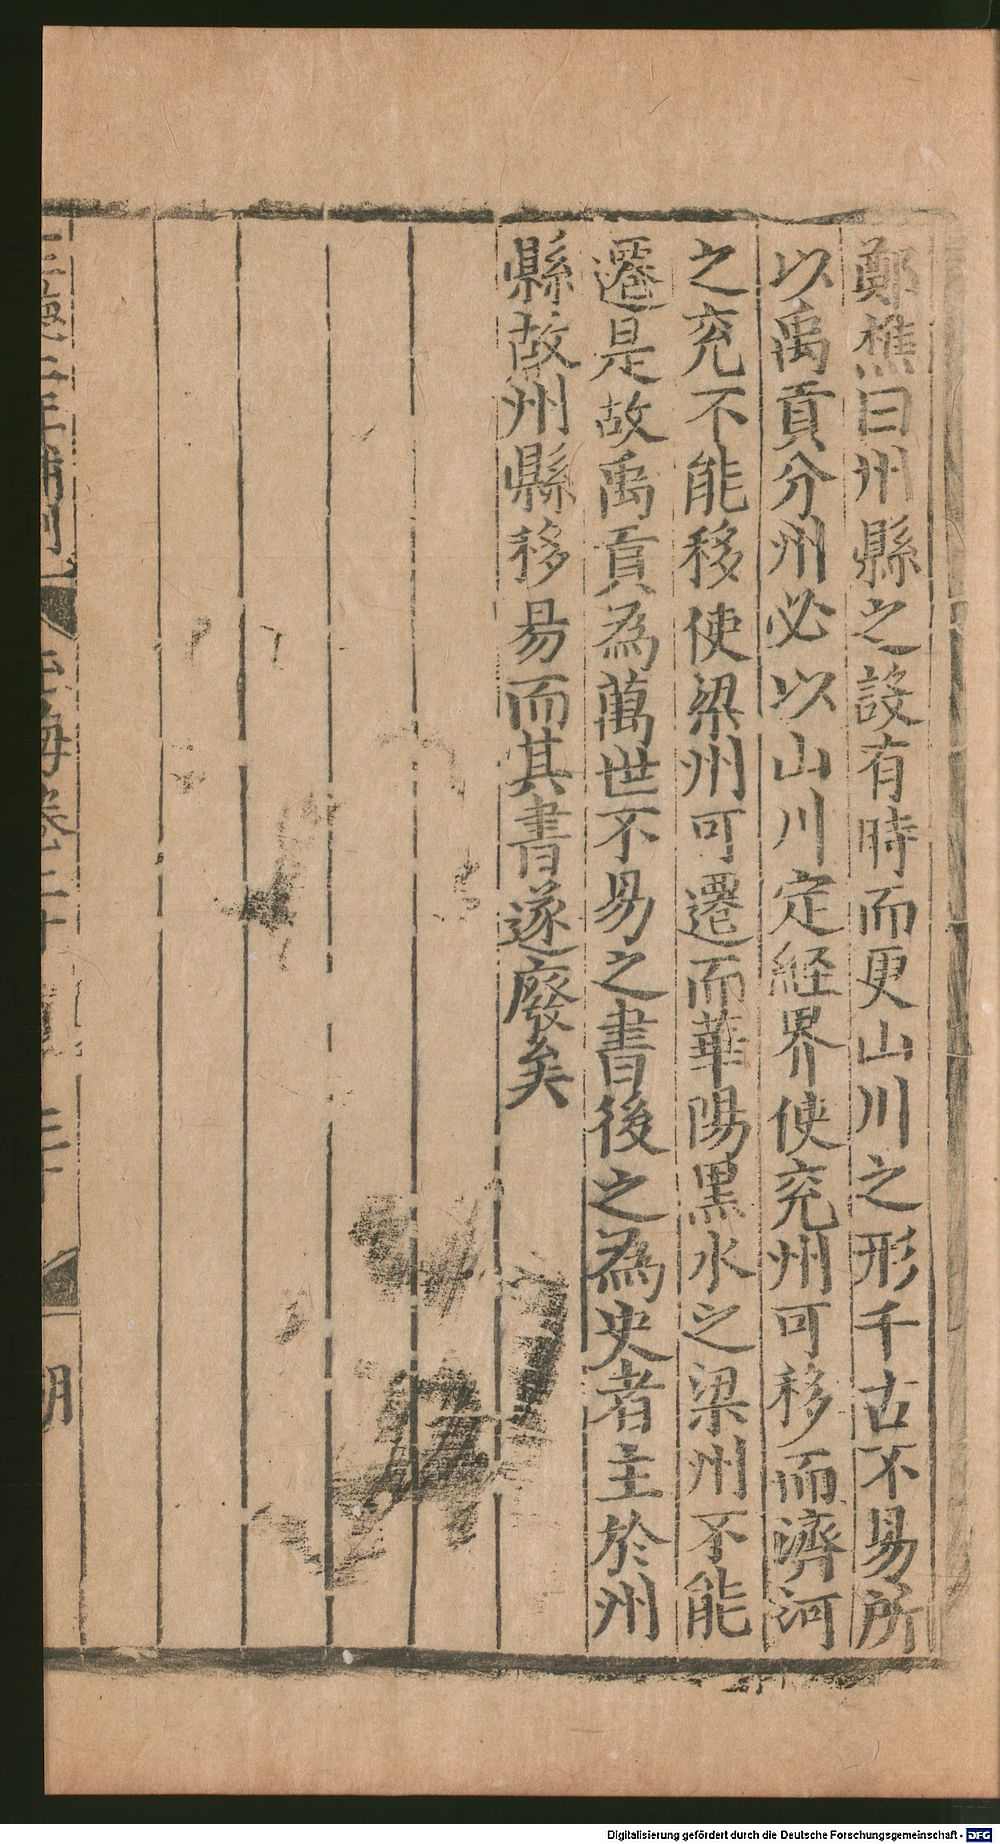 鄭樵曰州縣之設有時而更山川之形千古不易所
以禹貢分州必以山川定經界使兖州可移而濟河
之兖不能移使梁州可遷而華陽黒水之梁州不能
遷是故禹貢為萬世不易之書後之為史者主於州
縣故州縣移易而其書遂廢矣
玉海卷二十
Digitalisierung gefördert durch die Deutsche Forschungsgemeinschaft - DFG